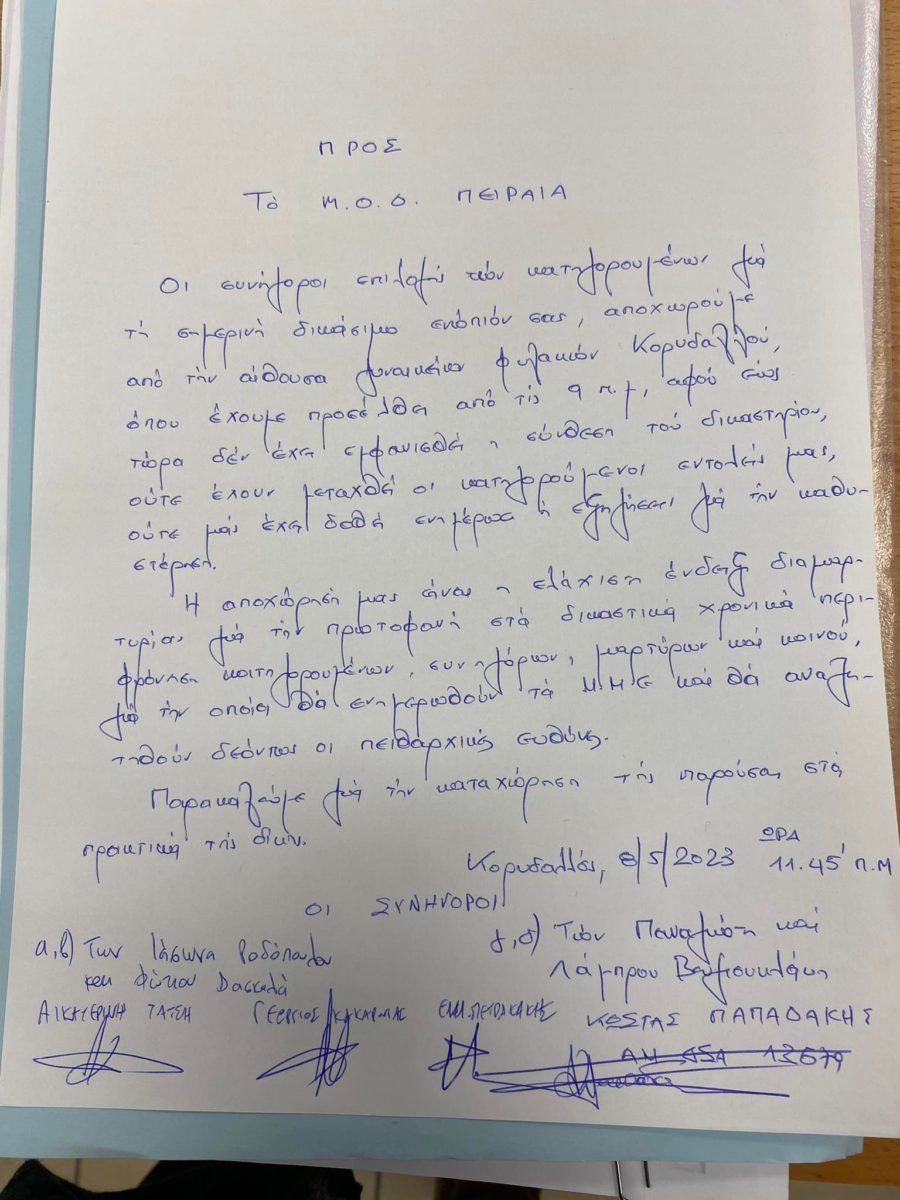 ΠΡΟΣ
Τό Μ.Ο.Δ. ΠΕΙΡΑΙΑ
Οι συνήγοροι επιλογής τών κατηγορουμένων γιά
τή σημερινή δικάσιμο ενώπιόν σας, αποχωρούμε
από τήν αίθουσα γυναικείων φυλακών Κορυδαλλού,
όπου έχουμε προσέλθει από τίς 9 π.μ, αφού έως
τώρα δέν έχει εμφανισθεί η σύνθεση τού δικαστηρίου,
ούτε έχουν μεταχθεί οι κατηγορούμενοι εντολείς μας,
ούτε μάς έχει δοθεί ενημέρωση ή εξηγήσεις γιά τήν καθυ-
στέρηση.
Η αποχώρησή μας είναι η ελάχιστη ένδειξη διαμαρ-
τυρίας γιά τήν πρωτοφανή στά δικαστικά χρονικά περι-
φρόνηση κατηγορουμένων, συνηγόρων, μαρτύρων καί κοινού,
γιά τήν οποία θά ενημερωθούν τά ΜΜΕ καί θά αναζη-
τηθούν δεόντως οι πειθαρχικές ευθύνες.
Παρακαλούμε γιά τήν καταχώρηση τής παρούσας στά
πρακτικά τής δίκης.
Κορυδαλλός, 8/5/2023 ΩΡΑ 11.45' π.μ
ΟΙ ΣΥΝΗΓΟΡΟΙ
α,β) Των Ιάσωνα Ροδόπουλου
και Φώτιου Δασκαλά
γ,δ) Τών Παναγιώτη καί
Λάμπρου
ΑΙΚΑΤΕΡΙΝΗ ΤΑΤΣΗ ΓΕΩΡΓΙΟΣ ΚΑΚΑΡΝΙΑΣ ΕΜΜ. ΠΕΤΡΑΚΑΚΗΣ ΚΩΣΤΑΣ ΠΑΠΑΔΑΚΗΣ
ΑΜ ΔΣΑ 13679